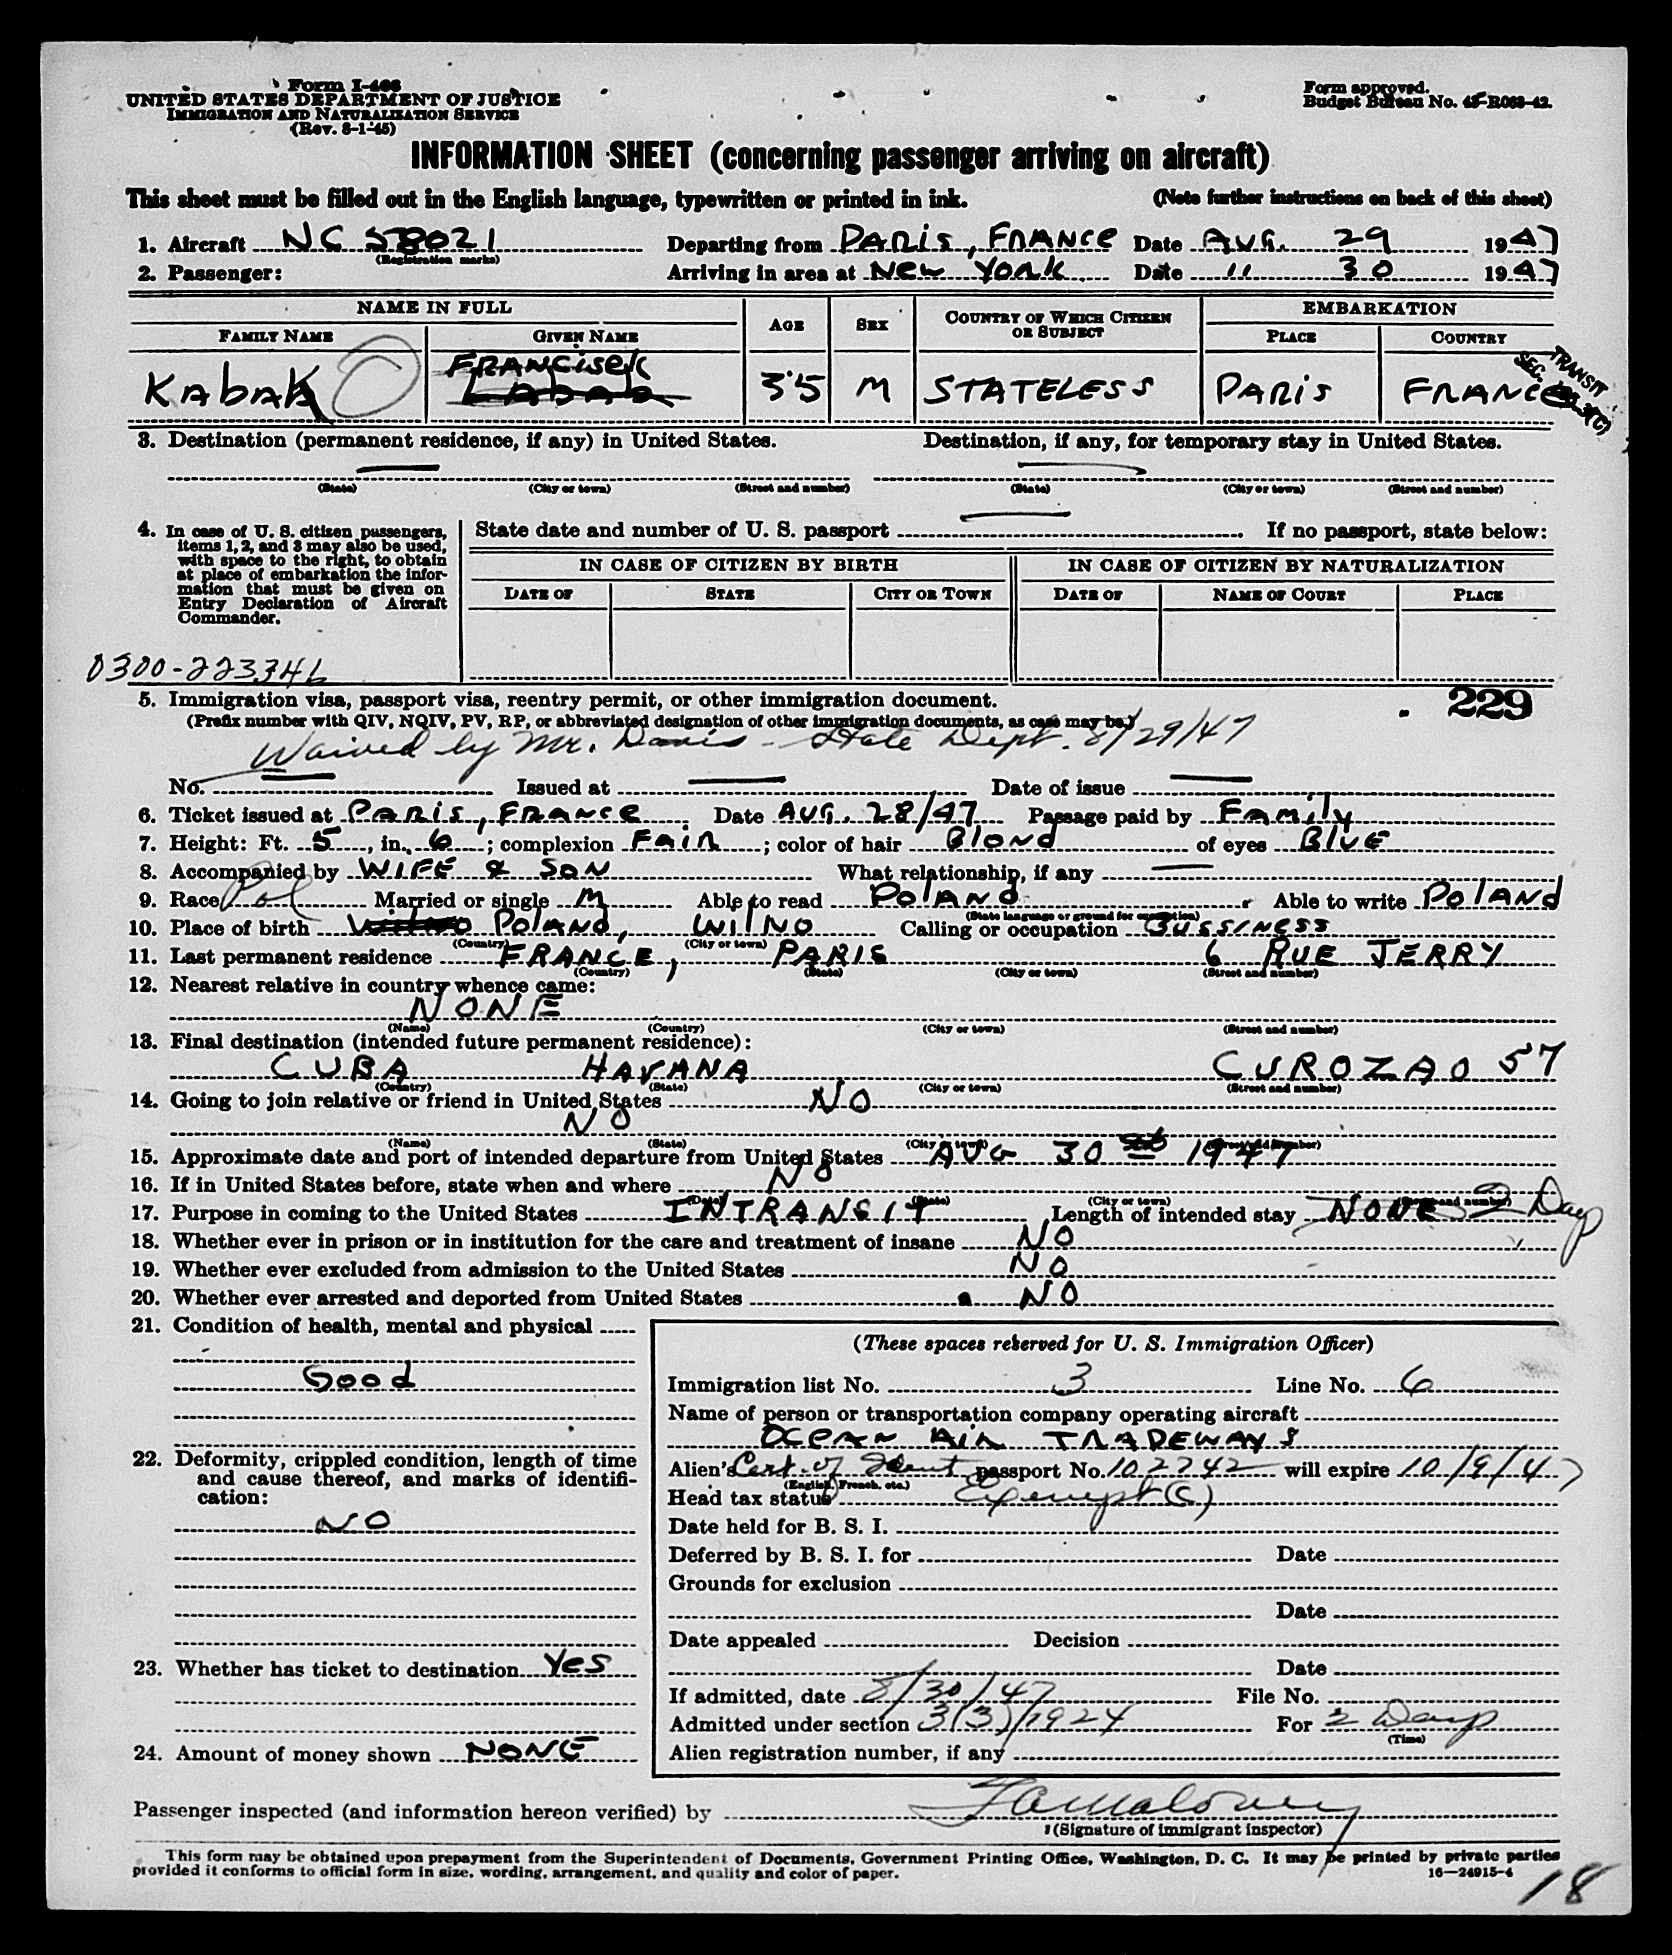 Form I-466
UNITED STATES DEPARTMENT OF JUSTICE
IMMIGRATION AND NATURALIZATION SERVICE
(Rev. 8-1-45)
Form approved.
Budget Bureau No. 43-R063-42.
INFORMATION SHEET (concerning passenger arriving on aircraft)
This sheet must be filled out in the English language, typewritten or printed in ink. (Note further instructions on back of this sheet)
1. Aircraft NC 58021 Departing from PARIS, FRANCE Date AUG. 29 1947
(Registration marks)
2. Passenger: Arriving in area at NEW YORK Date " 30 1947
NAME IN FULL AGE SEX COUNTRY OF WHICH CITIZEN OR SUBJECT EMBARKATION
FAMILY NAME GIVEN NAME PLACE COUNTRY
KABAK FRANCISEK 35 M STATELESS PARIS FRANCE
TRANSIT
SEC. 3(C)
3. Destination (permanent residence, if any) in United States. Destination, if any, for temporary stay in United States.
— —
(State) (City or town) (Street and number) (State) (City or town) (Street and number)
4. In case of U. S. citizen passengers, items 1, 2, and 3 may also be used, with space to the right, to obtain at place of embarkation the information that must be given on Entry Declaration of Aircraft Commander.
State date and number of U. S. passport — If no passport, state below:
IN CASE OF CITIZEN BY BIRTH IN CASE OF CITIZEN BY NATURALIZATION
DATE OF STATE CITY OR TOWN DATE OF NAME OF COURT PLACE
0300-223346
5. Immigration visa, passport visa, reentry permit, or other immigration document. 229
(Prefix number with QIV, NQIV, PV, RP, or abbreviated designation of other immigration documents, as case may be.)
Waived by Mr. Davis - State Dept. 8/29/47
No. — Issued at — Date of issue —
6. Ticket issued at PARIS, FRANCE Date AUG. 28/47 Passage paid by Family
7. Height: Ft. 5, in. 6; complexion FAIR; color of hair Blond of eyes BlUE
8. Accompanied by WIFE & SON What relationship, if any —
9. Race Pol Married or single M Able to read POLAND Able to write POLAND
(State language or ground for exemption)
10. Place of birth POLAND, WILNO Calling or occupation BUSSINESS
(Country) (City or town)
11. Last permanent residence FRANCE, PARIS 6 RUE JERRY
(Country) (State) (City or town) (Street and number)
12. Nearest relative in country whence came:
NONE
(Name) (Country) (City or town) (Street and number)
13. Final destination (intended future permanent residence):
CUBA HAVANA CUROZAO 57
(Country) (State) (City or town) (Street and number)
14. Going to join relative or friend in United States NO
NO
(Name) (State) (City or town) (Street and number)
15. Approximate date and port of intended departure from United States AUG 30 1947
16. If in United States before, state when and where NO
(Date) (State) (City or town) (Street and number)
17. Purpose in coming to the United States INTRANSIT Length of intended stay NONE 2 Days
18. Whether ever in prison or in institution for the care and treatment of insane NO
19. Whether ever excluded from admission to the United States NO
20. Whether ever arrested and deported from United States NO
21. Condition of health, mental and physical
Good
22. Deformity, crippled condition, length of time and cause thereof, and marks of identification:
NO
23. Whether has ticket to destination Yes
24. Amount of money shown NONE
(These spaces reserved for U. S. Immigration Officer)
Immigration list No. 3 Line No. 6
Name of person or transportation company operating aircraft
OCEAN AIR TRADEWAYS
Alien's Cert. of Ident passport No. 102742 will expire 10/9/47
(English, French, etc.)
Head tax status Exempt (C)
Date held for B. S. I.
Deferred by B. S. I. for Date
Grounds for exclusion
Date
Date appealed Decision
Date
If admitted, date 8/30/47 File No.
Admitted under section 3(3)/1924 For 2 Days
(Time)
Alien registration number, if any
Passenger inspected (and information hereon verified) by
(Signature of immigrant inspector)
This form may be obtained upon prepayment from the Superintendent of Documents, Government Printing Office, Washington, D. C. It may be printed by private parties
provided it conforms to official form in size, wording, arrangement, and quality and color of paper. 16—24915-4
18